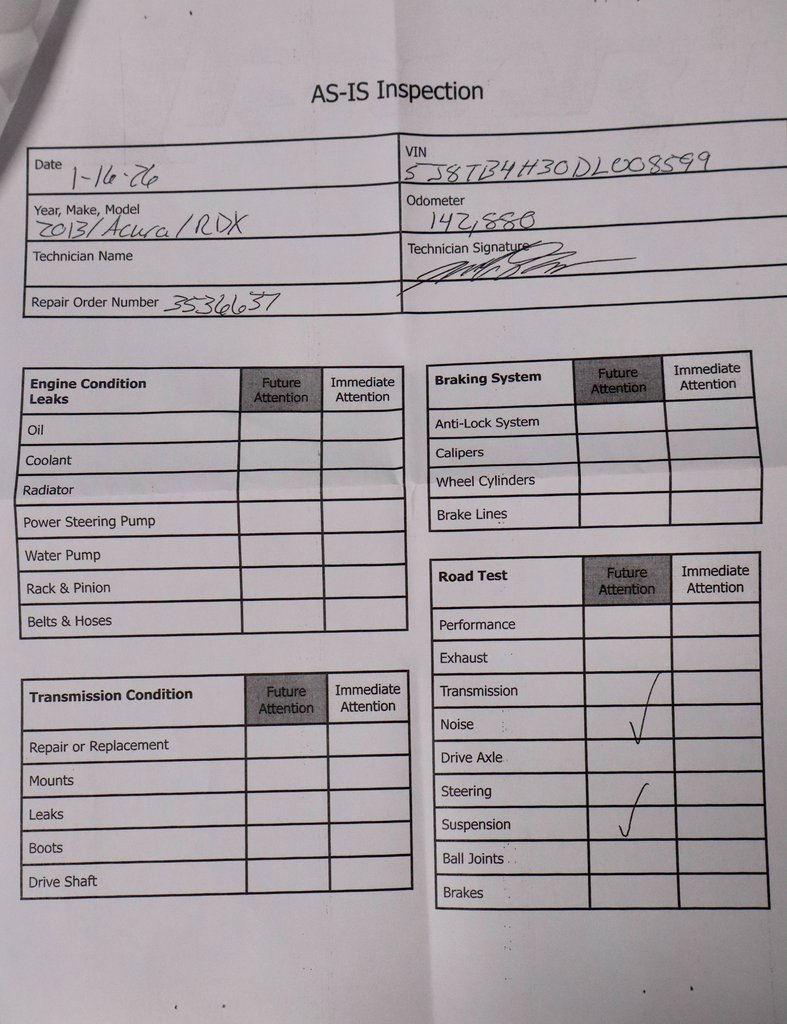 AS-IS Inspection
Date 1-16-26
VIN 5J8TB4H30DL008599
Year, Make, Model 2013/Acura/RDX
Odometer 142,880
Technician Name
Technician Signature
Repair Order Number 3536637
Engine Condition Leaks Future Attention Immediate Attention
Oil
Coolant
Radiator
Power Steering Pump
Water Pump
Rack & Pinion
Belts & Hoses
Transmission Condition Future Attention Immediate Attention
Repair or Replacement
Mounts
Leaks
Boots
Drive Shaft
Braking System Future Attention Immediate Attention
Anti-Lock System
Calipers
Wheel Cylinders
Brake Lines
Road Test Future Attention Immediate Attention
Performance
Exhaust
Transmission
Noise ✓
Drive Axle
Steering
Suspension ✓
Ball Joints
Brakes